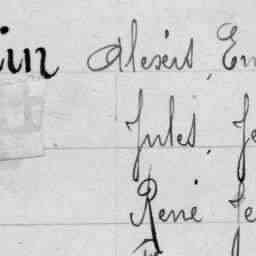 in Alexis, Em
Jules, Je
René Je